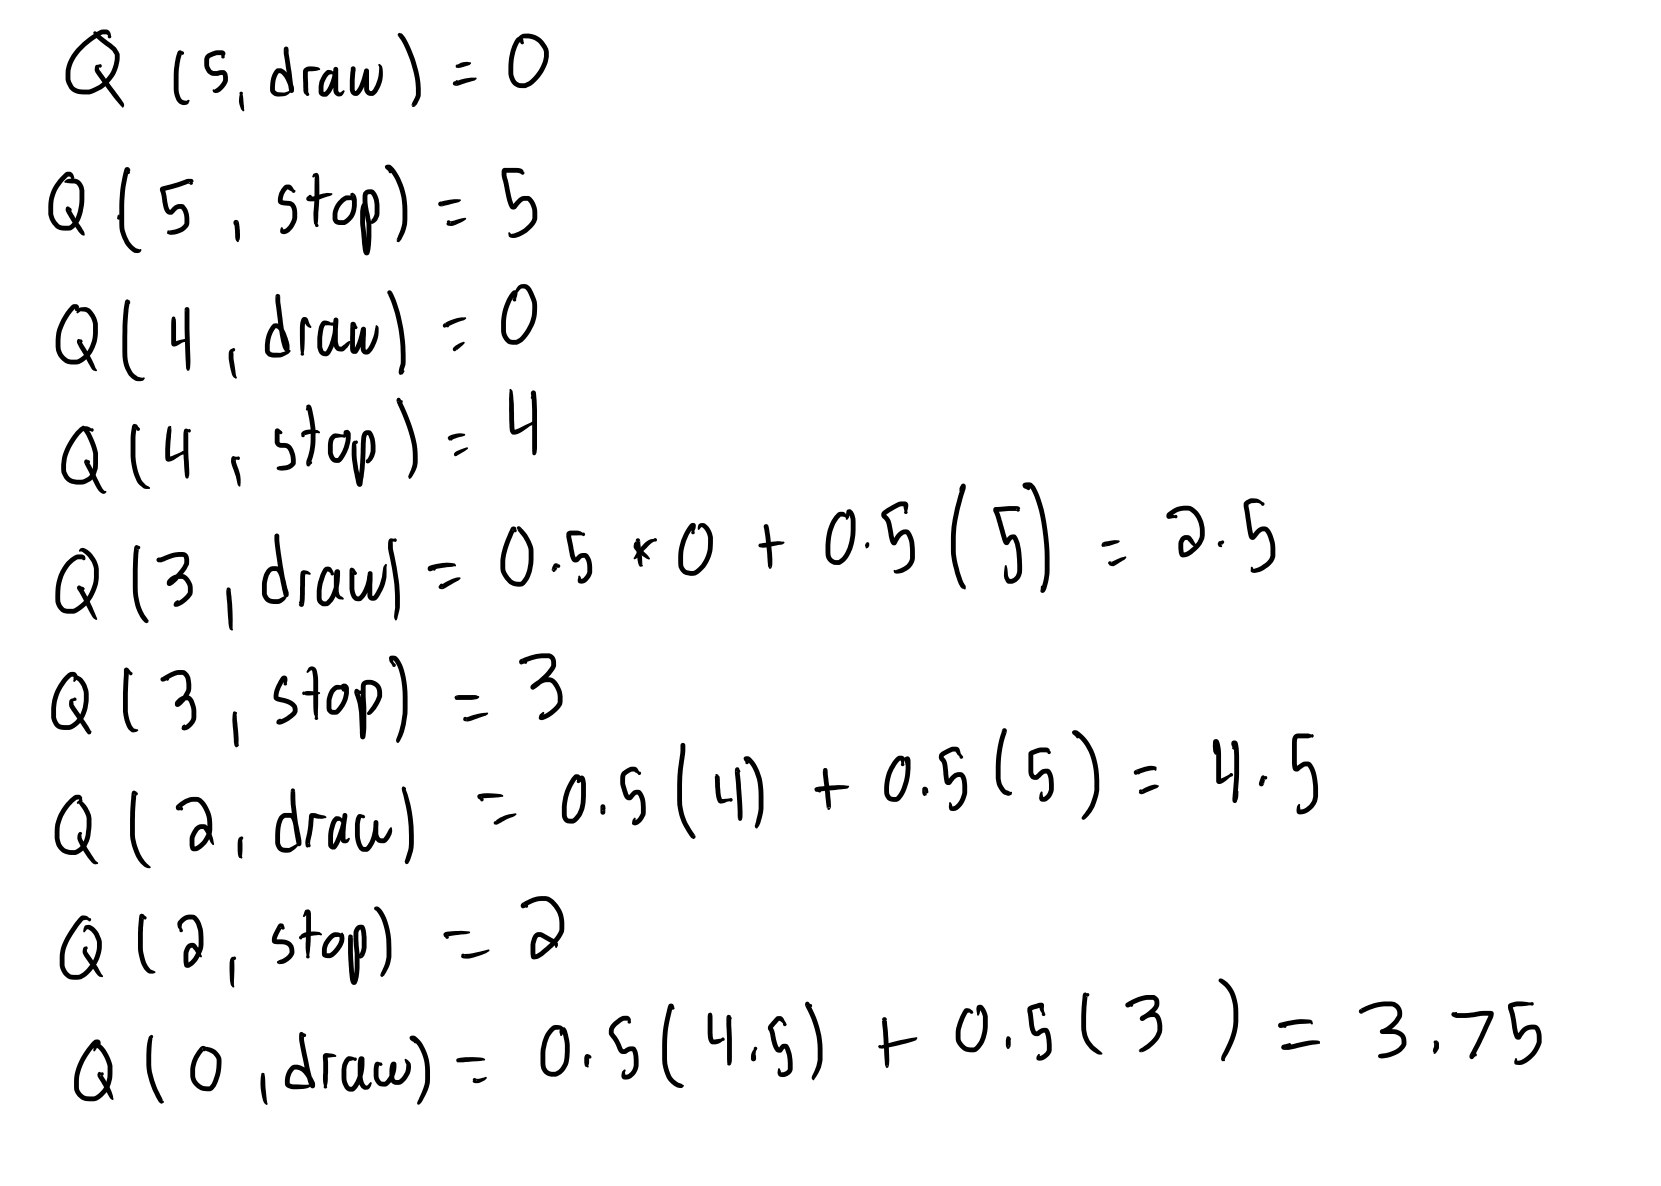 Q (5, draw) = 0
Q (5, stop) = 5
Q (4, draw) = 0
Q (4, stop) = 4
Q (3, draw) = 0.5 * 0 + 0.5 (5) = 2.5
Q (3, stop) = 3
Q (2, draw) = 0.5 (4) + 0.5 (5) = 4.5
Q (2, stop) = 2
Q (0, draw) = 0.5 (4.5) + 0.5 (3) = 3.75